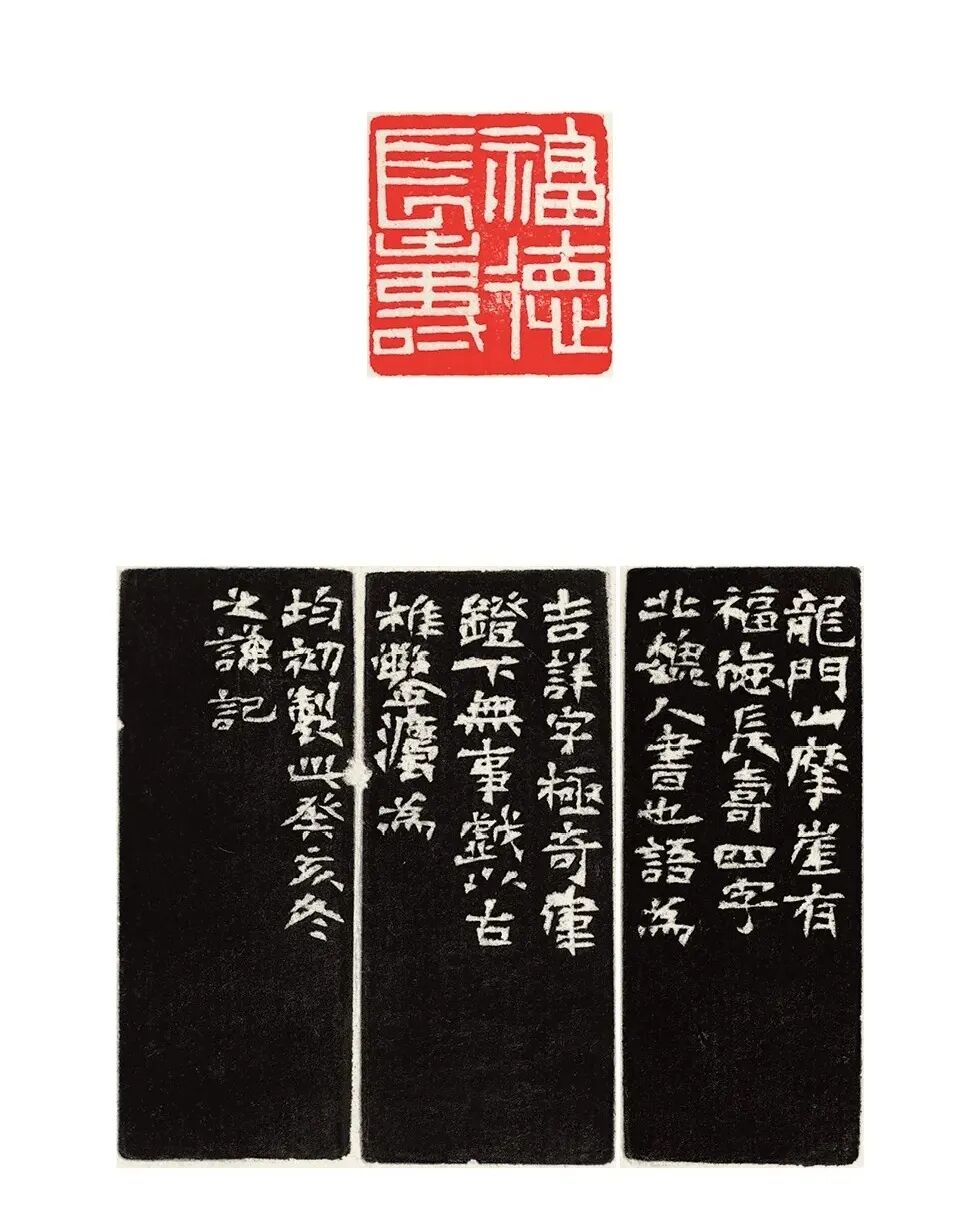 福德
長壽
龍門山摩崖有
福德長壽四字
北魏人書也語為
吉詳字極奇偉
鐙下無事戲以古
椎鑿灋為
均初製此癸亥冬
之謙記